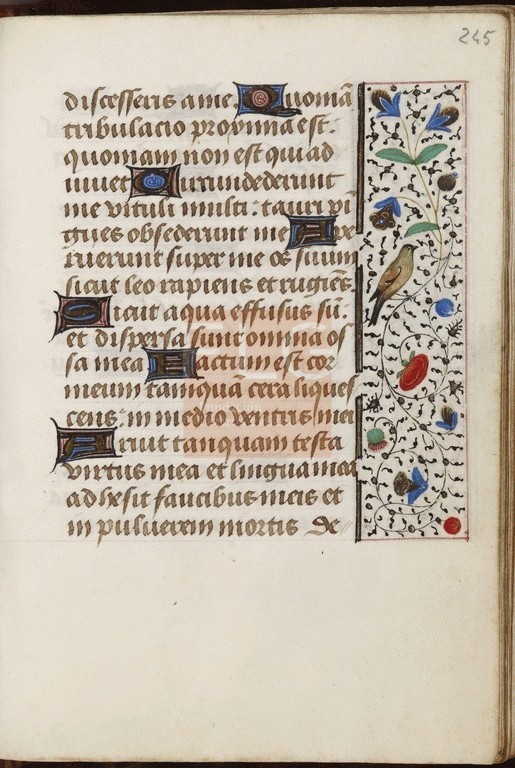 245
discesseris a me. Quoniā
tribulacio proxima est.
quoniam non est qui ad
iuuet Circumdederunt
me vituli multi: tauri pī
gues obsederunt me Ape
ruerunt super me os suum
sicut leo rapiens et rugiēs.
Sicut aqua effusus sū.
et dispersa sunt omnia os
sa mea Factum est cor
meum tamquā cera liques
cens in medio ventris mei
Aruit tanquam testa
virtus mea et lingua mea
adhesit faucibus meis et
in puluerem mortis de